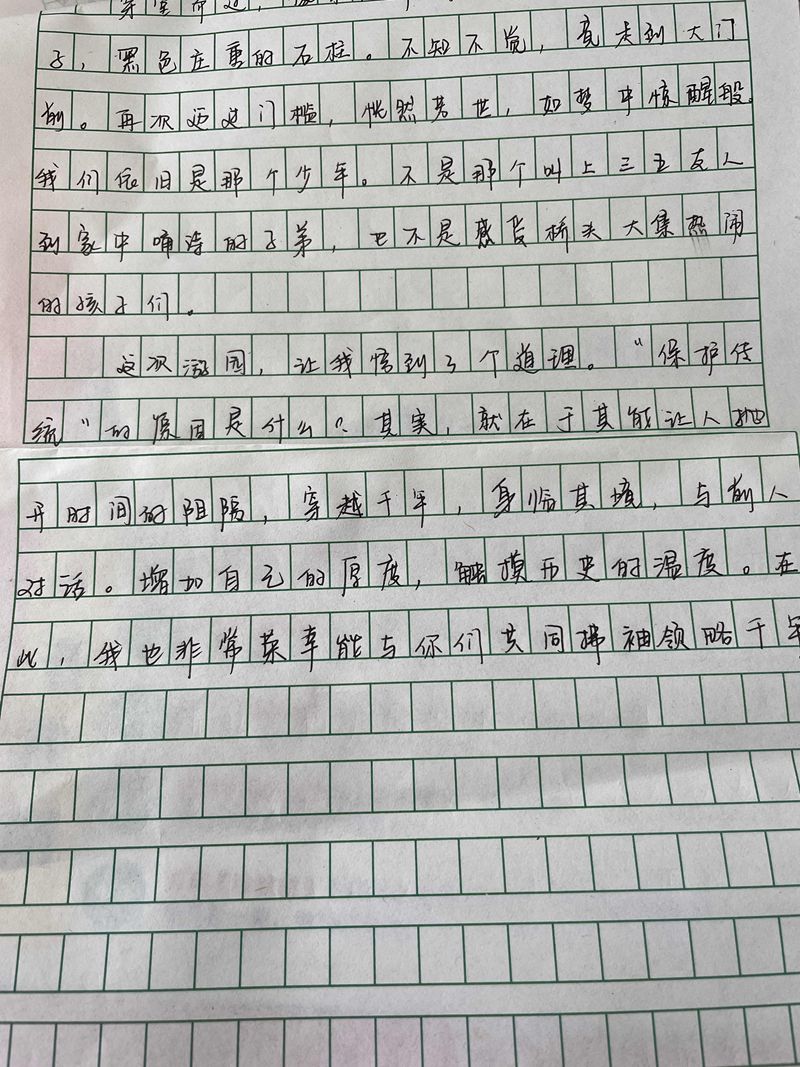 子，黑色庄重的石柱。不知不觉，竟走到大门
前。再次迈过门槛，恍然若世，如梦中惊醒般。
我们依旧是那个少年。不是那个叫上三五友人
到家中诵诗的子弟，也不是感受桥头大集热闹
的孩子们。
这次游园，让我悟到了个道理。“保护传
统”的原因是什么？其实，就在于其能让人抛
开时间的阻隔，穿越千年，身临其境，与前人
对话。增加自己的厚度，触摸历史的温度。在
此，我也非常荣幸能与你们共同拂袖领略千年